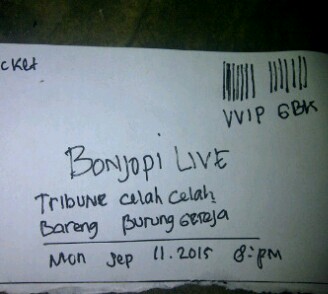 cket
VVIP GBK
BONJOPI LIVE
TRIBUNE CELAH CELAH
Bareng Burung Gereja
Mon Sep 11.2015 8:PM